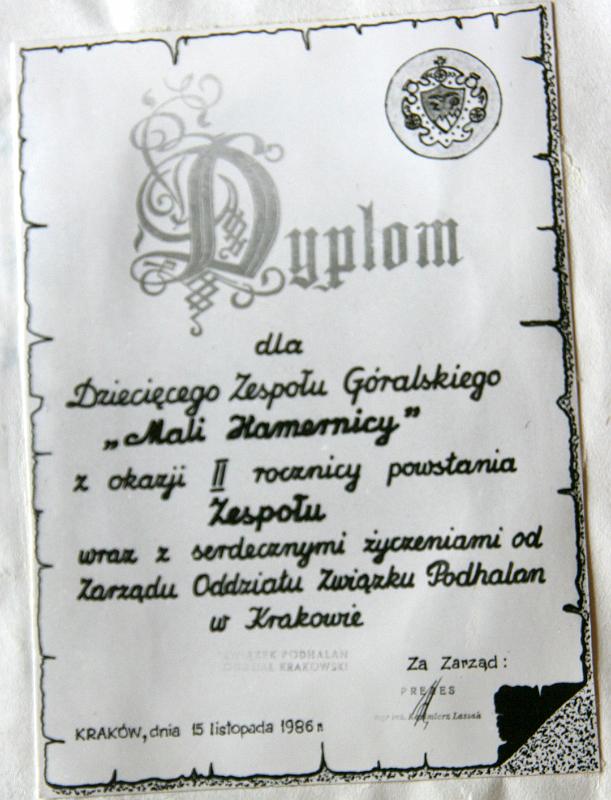 Dyplom
dla
Dziecięcego Zespołu Góralskiego
„Mali Hamernicy”
z okazji II rocznicy powstania
Zespołu
wraz z serdecznymi życzeniami od
Zarządu Oddziału Związku Podhalan
w Krakowie
ZWIĄZEK PODHALAN
ODDZIAŁ KRAKOWSKI
Za Zarząd:
PREZES
mgr inż. Kazimierz Lassak
KRAKÓW, dnia 15 listopada 1986 r.